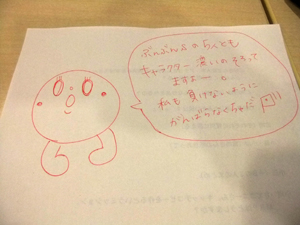 ぶんぶんぶのちんとも
キャラクター濃いのそろって
ますよー。
私も負けないように
がんばらなくちゃだ